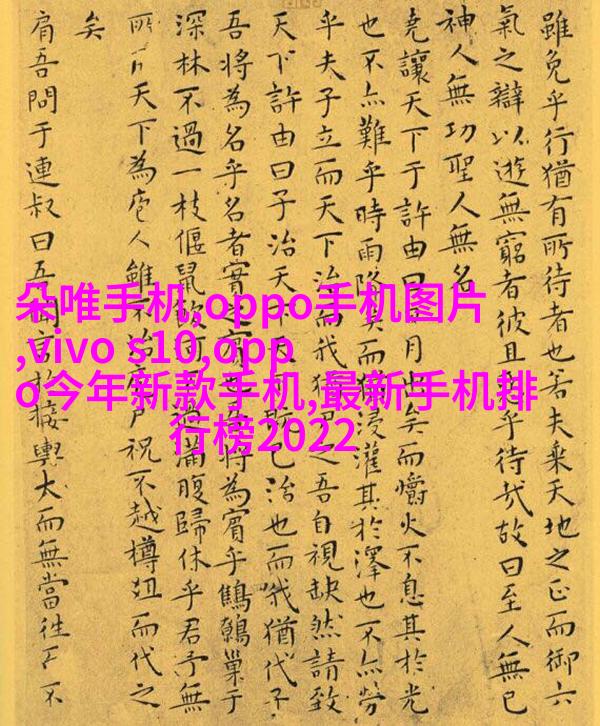 朵唯手机,oppo手机图片
,vivo s10,opp
o今年新款手机,最新手机排
行榜2022
雖免乎行猶有所待者也若夫乘天地之正而御六
氣之辯以遊無窮者彼且乎待哉故曰至人無己
神人無功聖人無名
堯讓天下于許由曰月出矣而爝火不息其於光
也不亦難乎時雨降矣而猶浸灌其於澤也不亦勞
乎夫子立而天下治而我猶之吾自視缺然請致
天下許由曰子治天下既已治也而我猶代子
吾將為名乎名者實之賓也吾將為賓乎鷦鷯巢于
深林不過一枝偃鼠飲河不過滿腹歸休乎君予無
所天下為庖人雖不治庖尸祝不越樽俎而代之
矣
肩吾問于連叔曰吾聞言於接輿大而無當往而不